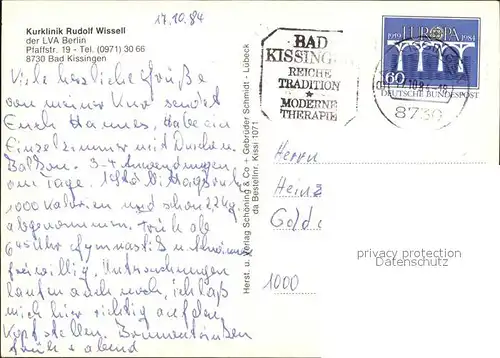 17.10.84
Kurklinik Rudolf Wissell
der LVA Berlin
Pfaffstr. 19 - Tel. (0971) 30 66
8730 Bad Kissingen
Viele herzliche Grüße
von meiner Kur sendet
Euch Hannes, Habe ein
Einzelzimmer mit Dusche u.
Balkon. 3-4 Anwendungen
am Tage. 1 Std Mittagsruhe
1000 Kalorien und schon 2,2 kg
abgenommen. Früh ab
6 45 Uhr Gymnastik u. Schwimmen
freiwillig. Untersuchungen
laufen auch noch, ich laß
mich hier richtig auf den
Kopf stellen. Brunnentrinken
früh + abend
Herst. u. Verlag Schöning & Co + Gebrüder Schmidt - Lübeck
da Bestellnr. Kissi 1071
BAD
KISSINGEN
REICHE
TRADITION
★
MODERNE
THERAPIE
1919 EUROPA 1984
60
DEUTSCHE BUNDESPOST
8730
Herrn
Heinz
Gold
1000
privacy protection
Datenschutz